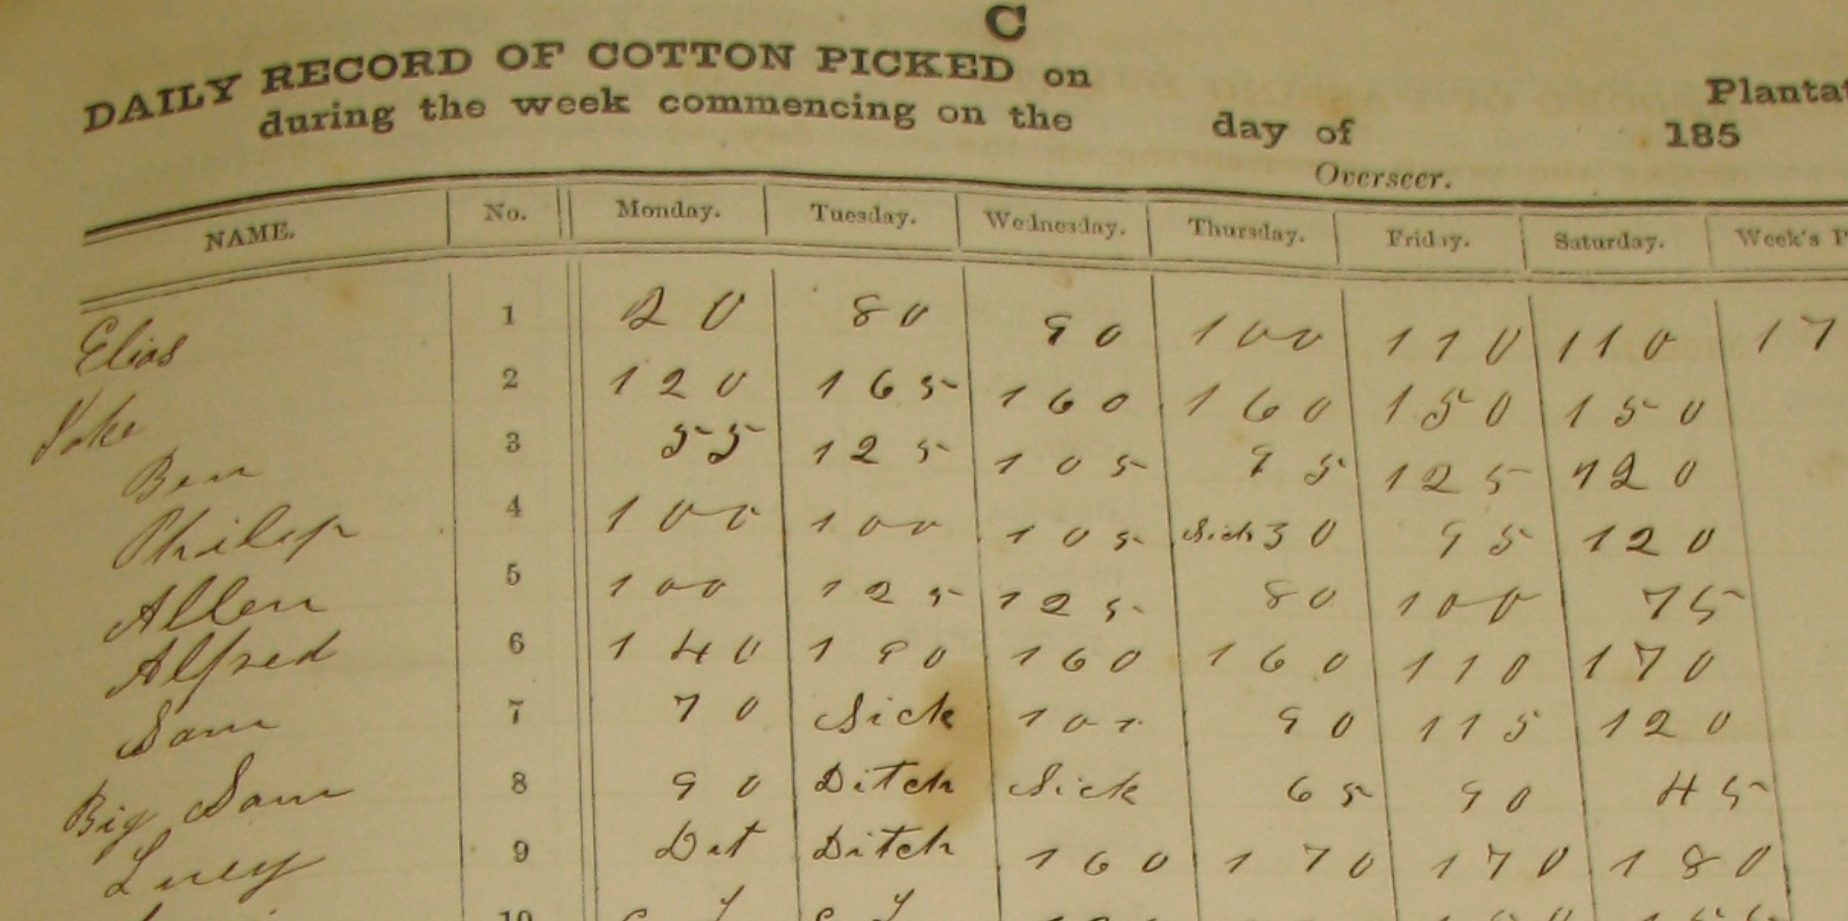 C
DAILY RECORD OF COTTON PICKED on Plantat
during the week commencing on the day of 185
Overseer.
NAME. No. Monday. Tuesday. Wednesday. Thursday. Friday. Saturday. Week's P
Elias 1 20 80 90 100 110 110 17
2 120 165 160 160 150 150
Ben 3 55 125 105 95 125 120
Philip 4 100 100 105 Sick 30 95 120
Allen 5 100 125 125 80 100 75
Alfred 6 140 190 160 160 110 170
Sam 7 70 Sick 90 115 120
Big Sam 8 90 Ditch Sick 65 90 45
Lucy 9 Dit Ditch 160 170 170 180
10